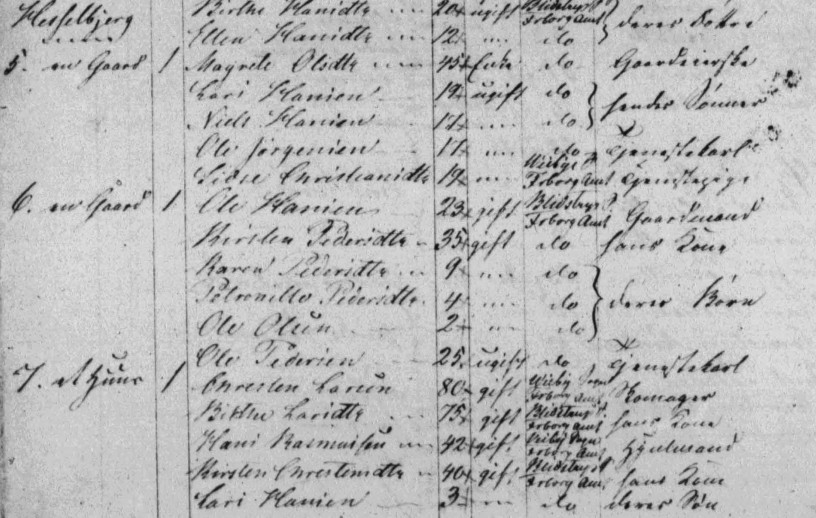 Hesselbjerg Birthe Hansdtr 20 ugift Forborg Amt deres Dottre
Ellen Hansdtr 12 do
5. en Gaard 1 Magrete Olsdtr 45 Enke do Gaardeierske
Lars Hansen 19 ugift do hendes Sønner
Niels Hansen 17 do
Ole Jørgensen 17 do Tjenestekarl
Sidse Christiansdtr 19 Forborg Amt Tjenestepige
6. en Gaard 1 Ole Hansen 23 gift Forborg Amt Gaardmand
Kirsten Pedersdtr 35 gift do hans Kone
Karen Pedersdtr 9 do
Petronille Pedersdtr 4 do deres Børn
Ole Olsen 2 do
Ole Pedersen 25 ugift do Tjenestekarl
7. et Huus 1 Chresten Larsen 80 gift Forborg Amt
Birthe Larsdtr 75 gift Forborg Amt hans Kone
Hans Rasmussen 42 gift Forborg Amt Hjulmand
Kirsten Chrestensdtr 40 gift Forborg Amt hans Kone
Lars Hansen 3 do deres Søn